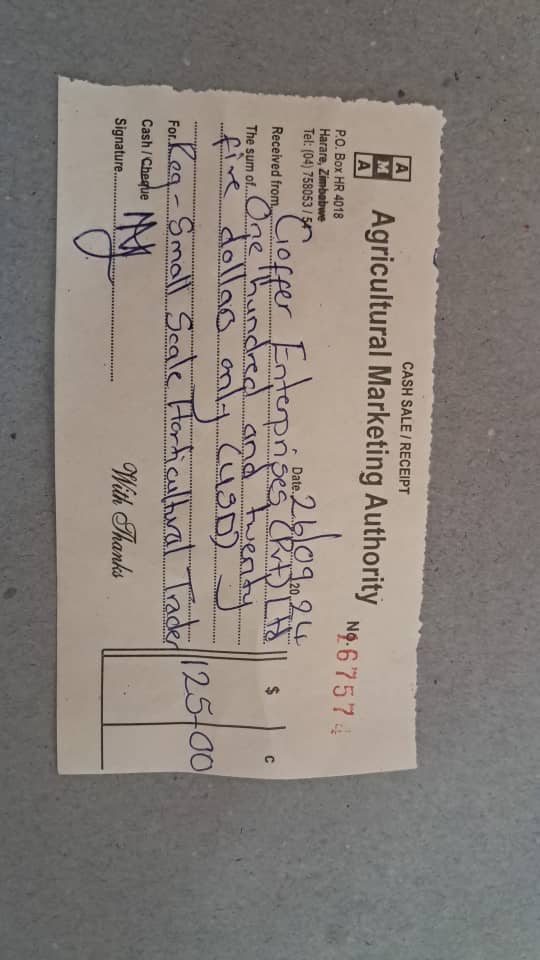 CASH SALE / RECEIPT
A
M
A
Agricultural Marketing Authority
No. 67574
P.O. Box HR 4018
Harare, Zimbabwe
Tel: (04) 758053 / 54
Date 26/09 2024
Received from Goffer Enterprises (Pvt) Ltd
The sum of One Hundred and twenty
five dollars only (USD)
For Reg - Small Scale Horticultural Trader
$ C
125-00
Cash / Cheque
Signature
With Thanks